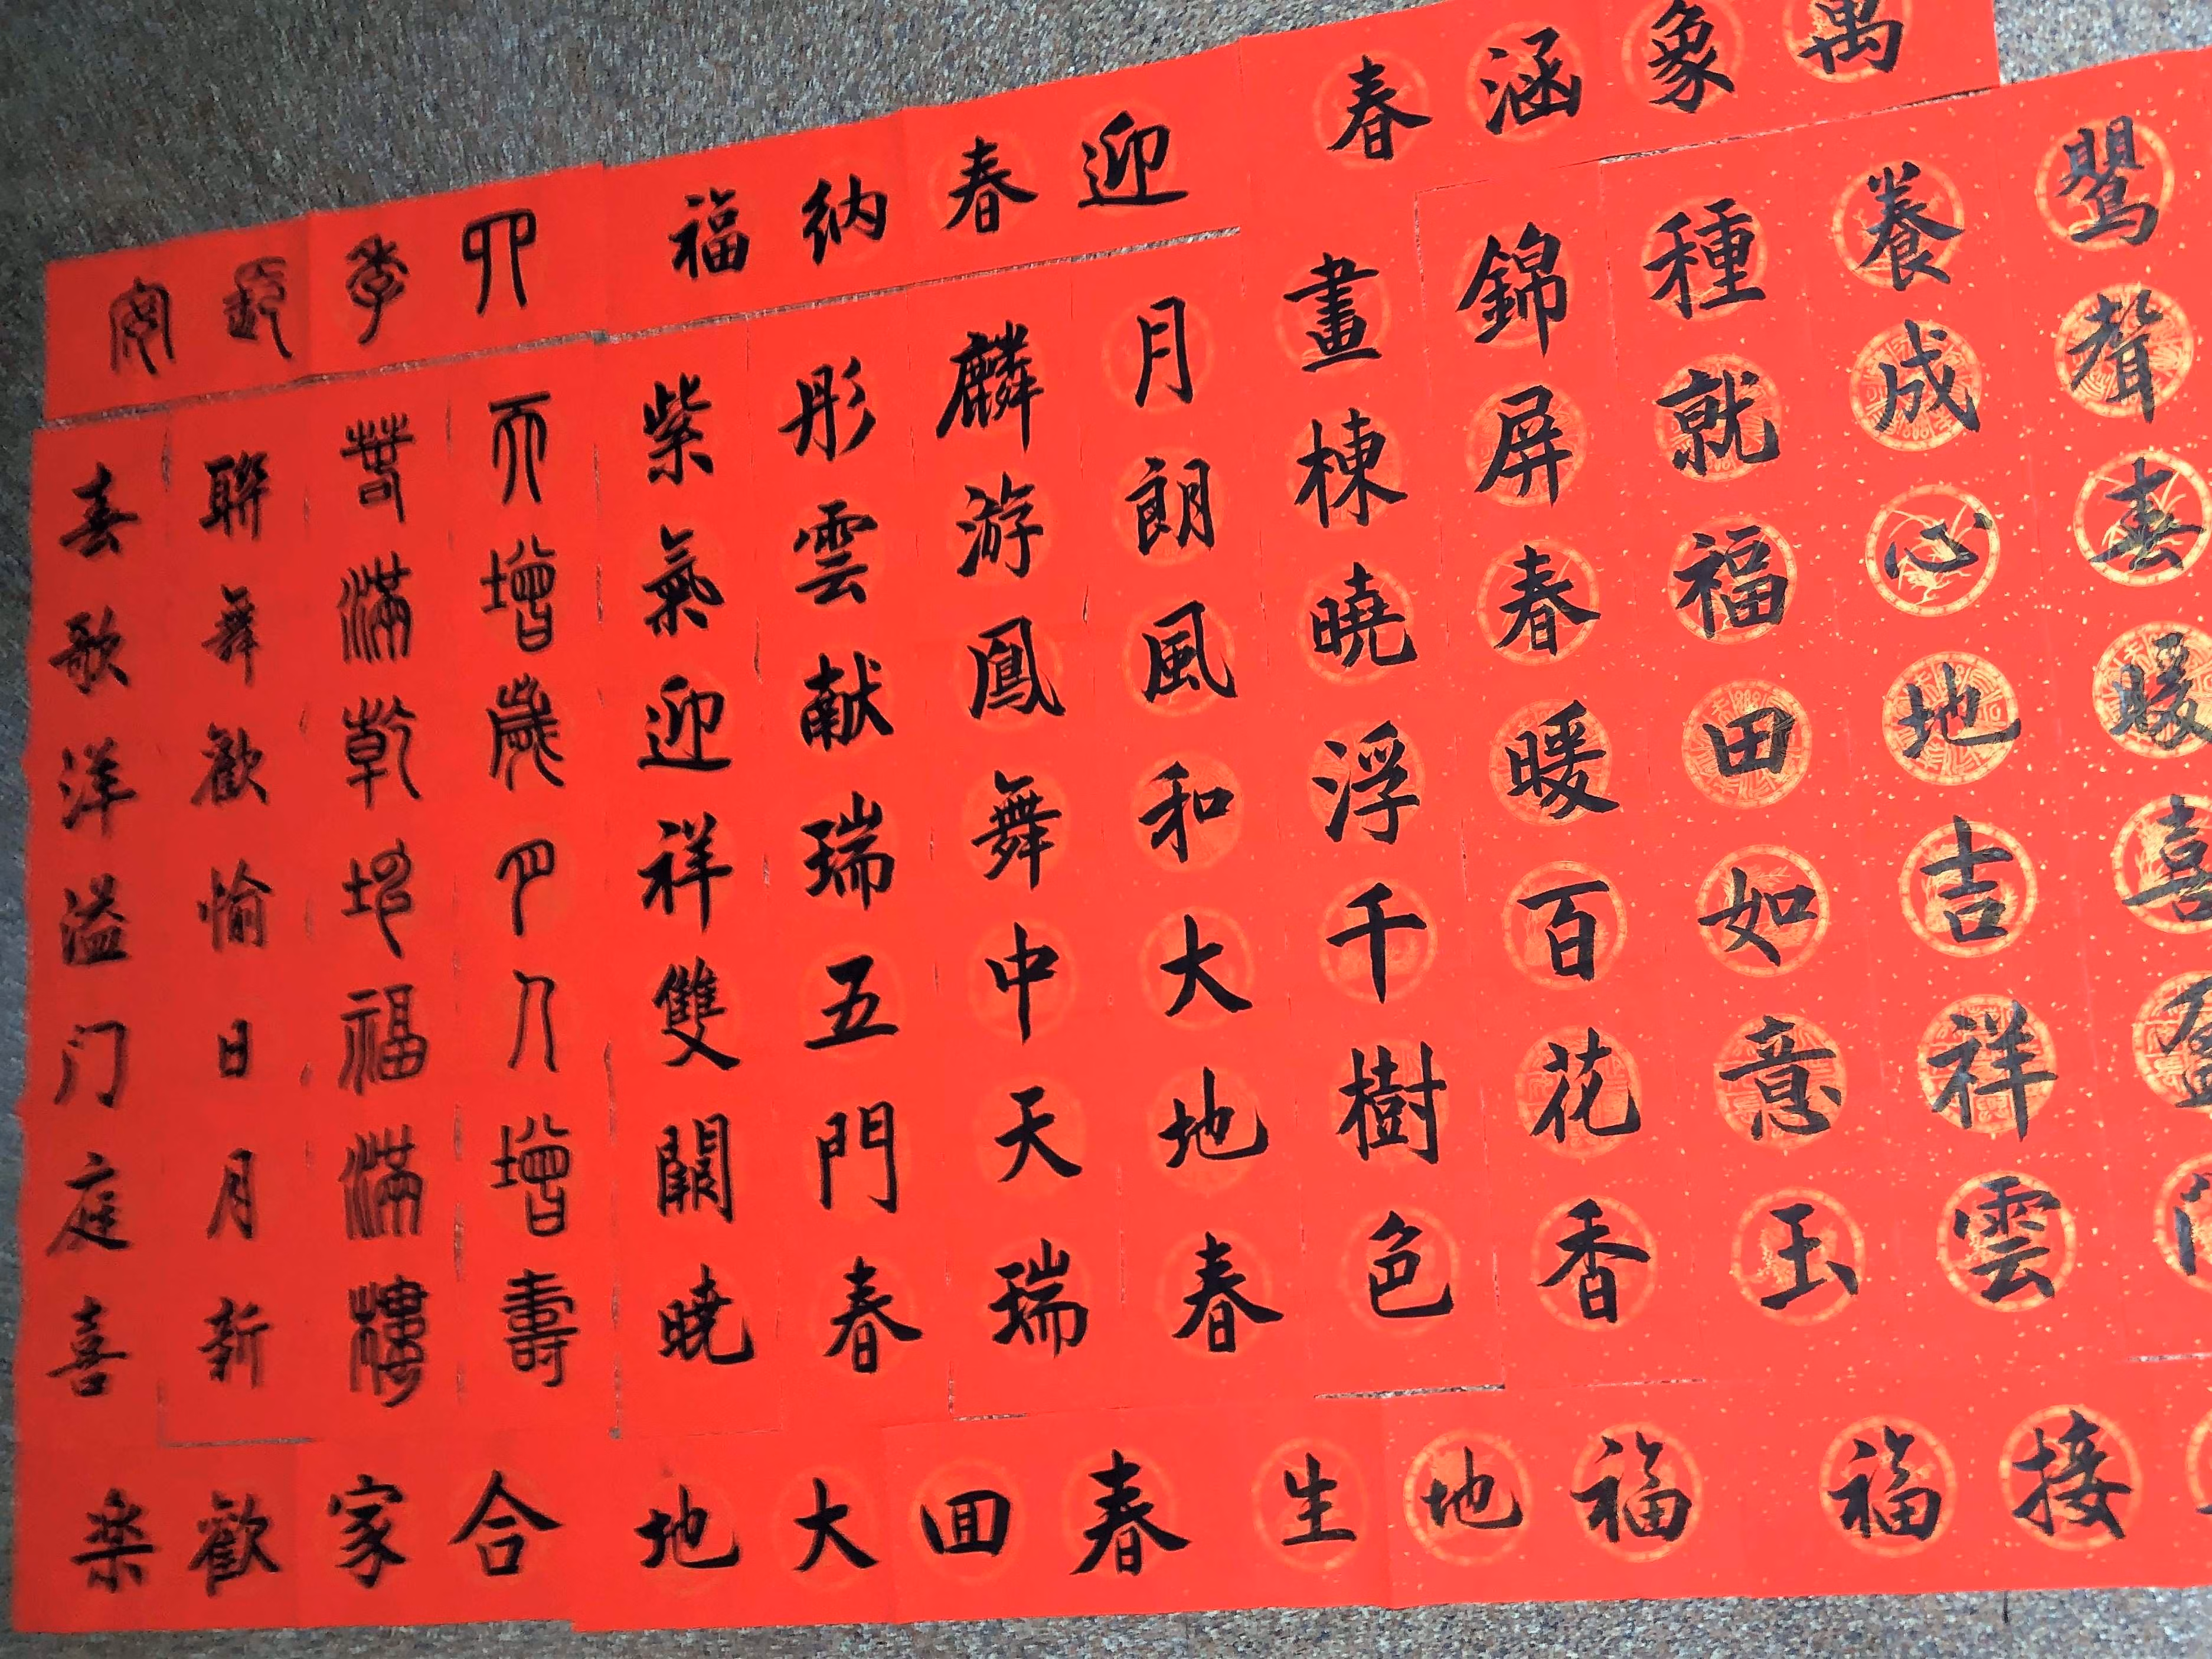 萬象涵春
迎春納福
四季安
鸎聲春暖喜盈
養成心地吉祥雲
種就福田如意玉
錦屏春暖百花香
畫棟曉浮千樹色
月朗風和大地春
麟游鳳舞中天瑞
彤雲献瑞五門春
紫氣迎祥雙闕曉
天增歲月人增壽
春滿乾坤福滿樓
聯舞歡愉日月新
春歌洋溢门庭喜
接福
福地生
春囬大地
合家歡楽